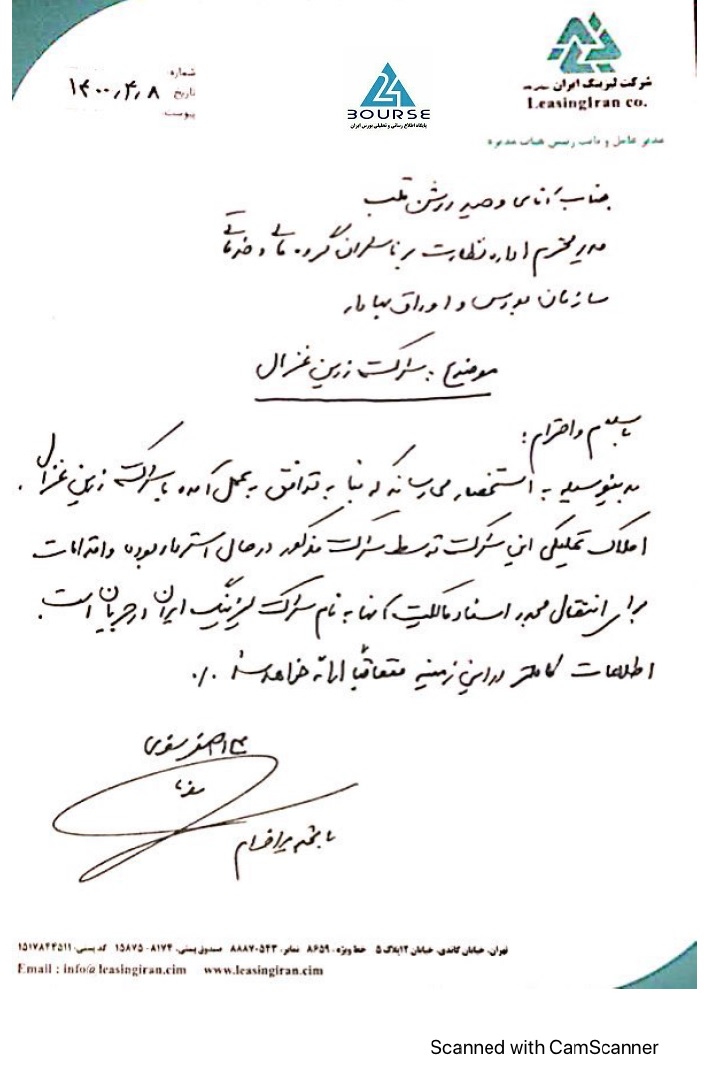 شماره:
تاریخ ۱۴۰۰٫۴٫۸
پیوست
24
BOURSE
پایگاه اطلاع رسانی و تحلیلی بورس ایران
شرکت لیزینگ ایران
LeasingIran co.
مدیر عامل و نائب رییس هیات مدیره
جناب آقای وحید روشن قلب
مدیر محترم اداره نظارت بر ناشران گروه مالی و خدماتی
سازمان بورس و اوراق بهادار
موضوع: شرکت زرین غزال
با سلام و احترام:
بدینوسیله به استحضار می‌رساند که بنا به توافق به عمل آمده با شرکت زرین غزال،
املاک تملیکی این شرکت توسط شرکت مذکور در حال استرداد بوده و اقدامات
برای انتقال مجدد اسناد مالکیت آنها به نام شرکت لیزینگ ایران در جریان است.
اطلاعات کاملتر در این زمینه متعاقباً ارائه خواهد شد ٪.
با تجدید احترام
تهران، خیابان گاندی، خیابان ۱۲پلاک ۵ خط ویژه: ۸۶۵۹۰ نمابر: ۸۸۸۷۰۵۴۳ صندوق پستی: ۸۱۷۴-۱۵۸۷۵ کد پستی: ۱۵۱۷۸۴۴۵۱۱
Email : info@leasingiran.cim www.leasingiran.cim
Scanned with CamScanner